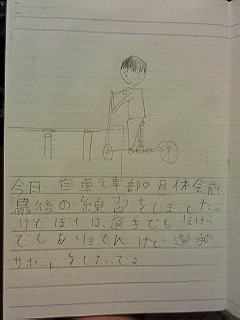 今日 自車部の県体会前
最後の練習をしました。
けどぼくは、選手でもほけつ
でもありませんけど選手
サポートをしたいでる